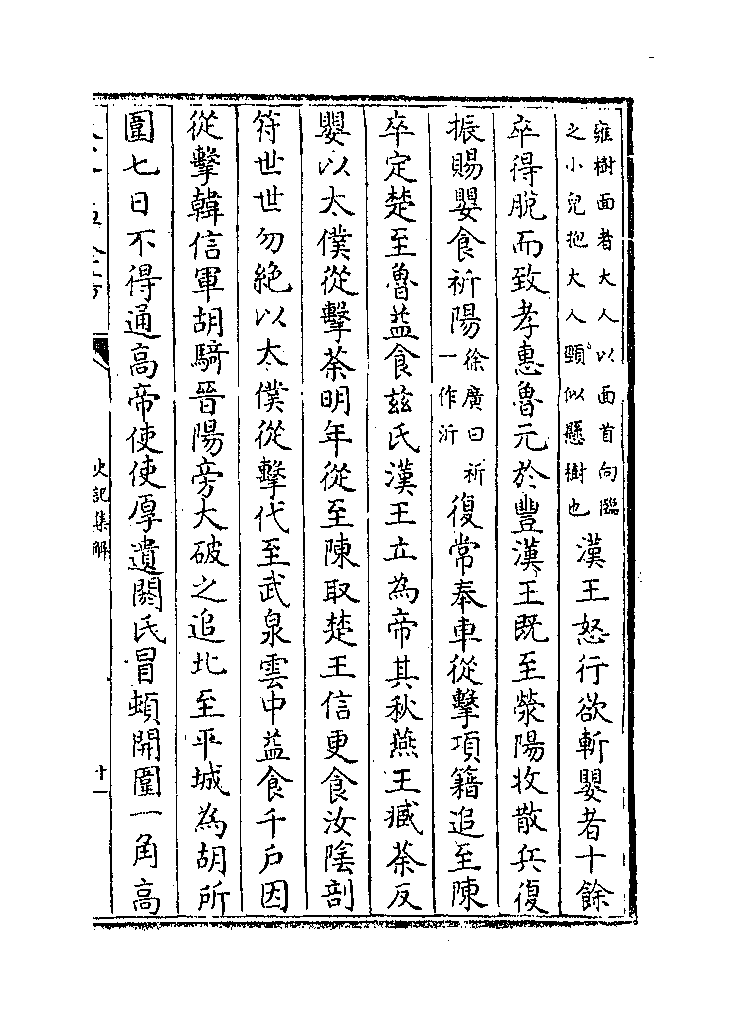 雍樹面者大人以面首向臨
之小兒抱大人頸似懸樹也
漢王怒行欲斬嬰者十餘
卒得脫而致孝惠魯元於豐漢王既至滎陽收散兵復
振賜嬰食祈陽
徐廣曰祈
一作沂
復常奉車從擊項籍追至陳
卒定楚至魯益食兹氏漢王立為帝其秋燕王臧荼反
嬰以太僕從擊荼明年從至陳取楚王信更食汝隂剖
符世世勿絶以太僕從擊代至武泉雲中益食千户因
從擊韓信軍胡騎晉陽旁大破之追北至平城為胡所
圍七日不得通高帝使使厚遺閼氏冒頓開圍一角高
史記集解
十一